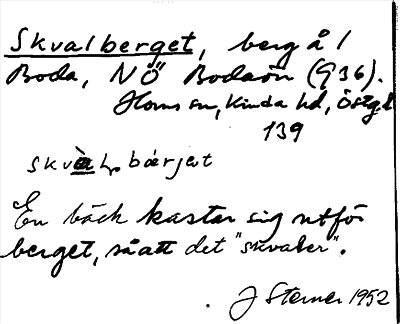 Skvalberget, berg å /
Boda, NÖ Bodaön (936).
Horns sn, Kinda hd, Östgl
139
bärjat
En bäck kastar sig utför
berget, såatt det "skvaler".
J Sterner 1952